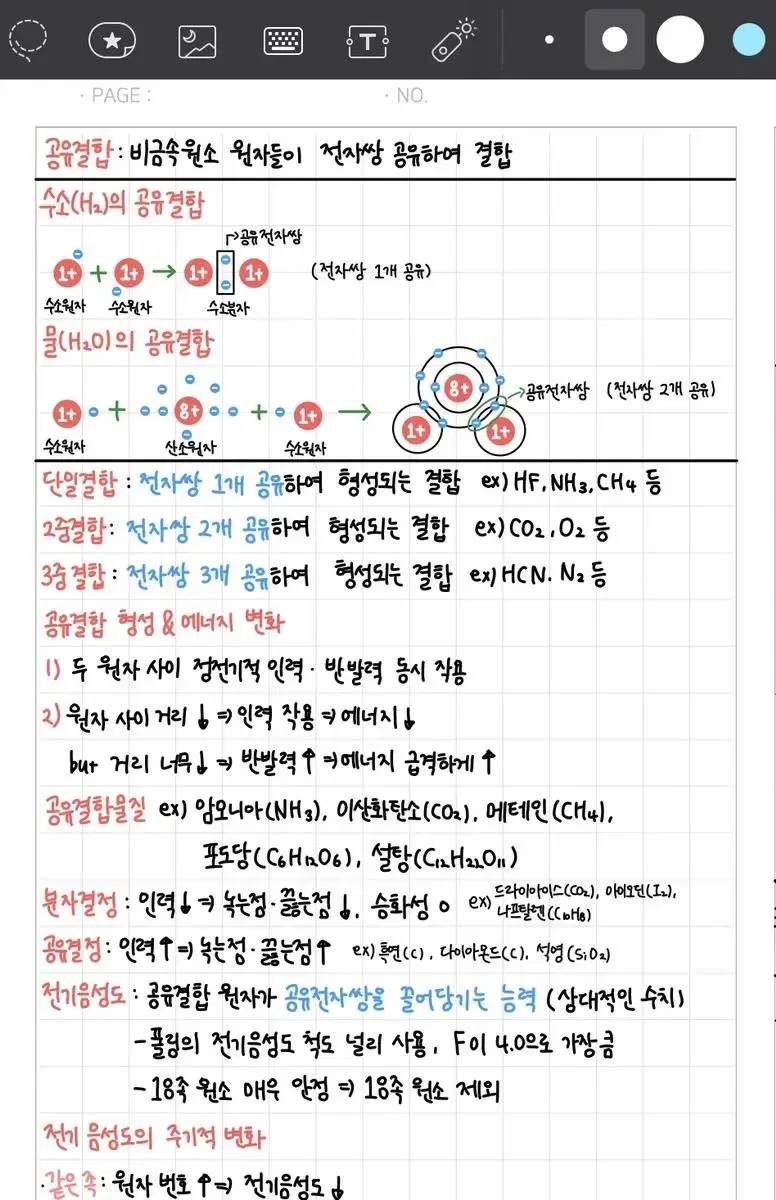 T
· PAGE :
· NO.
공유결합 : 비금속원소 원자들이 전자쌍 공유하여 결합
수소(H₂)의 공유결합
공유전자쌍
1+ + 1+ → 1+ 1+ (전자쌍 1개 공유)
수소원자 수소원자 수소분자
물(H₂O)의 공유결합
1+ + 8+ + 1+ → 8+ 1+ 1+ 공유전자쌍 (전자쌍 2개 공유)
수소원자 산소원자 수소원자
단일결합 : 전자쌍 1개 공유하여 형성되는 결합 ex) HF, NH₃, CH₄ 등
2중결합 : 전자쌍 2개 공유하여 형성되는 결합 ex) CO₂, O₂ 등
3중결합 : 전자쌍 3개 공유하여 형성되는 결합 ex) HCN. N₂ 등
공유결합 형성 & 에너지 변화
1) 두 원자 사이 정전기적 인력 · 반발력 동시 작용
2) 원자 사이 거리 ↓ ⇒ 인력 작용 ⇒ 에너지↓
but 거리 너무↓ ⇒ 반발력↑ ⇒ 에너지 급격하게 ↑
공유결합물질 ex) 암모니아(NH₃), 이산화탄소(CO₂), 메테인(CH₄),
포도당(C₆H₁₂O₆), 설탕(C₁₂H₂₂O₁₁)
분자결정 : 인력↓ ⇒ 녹는점·끓는점↓, 승화성 o ex) 드라이아이스(CO₂), 아이오딘(I₂),
나프탈렌(C₁₀H₈)
공유결정 : 인력↑ ⇒ 녹는점·끓는점↑ ex) 흑연(C), 다이아몬드(C), 석영(SiO₂)
전기음성도 : 공유결합 원자가 공유전자쌍을 끌어당기는 능력 (상대적인 수치)
- 폴링의 전기음성도 척도 널리 사용, F이 4.0으로 가장 큼
- 18족 원소 매우 안정 ⇒ 18족 원소 제외
전기 음성도의 주기적 변화
·같은족 : 원자 번호 ↑ ⇒ 전기음성도↓